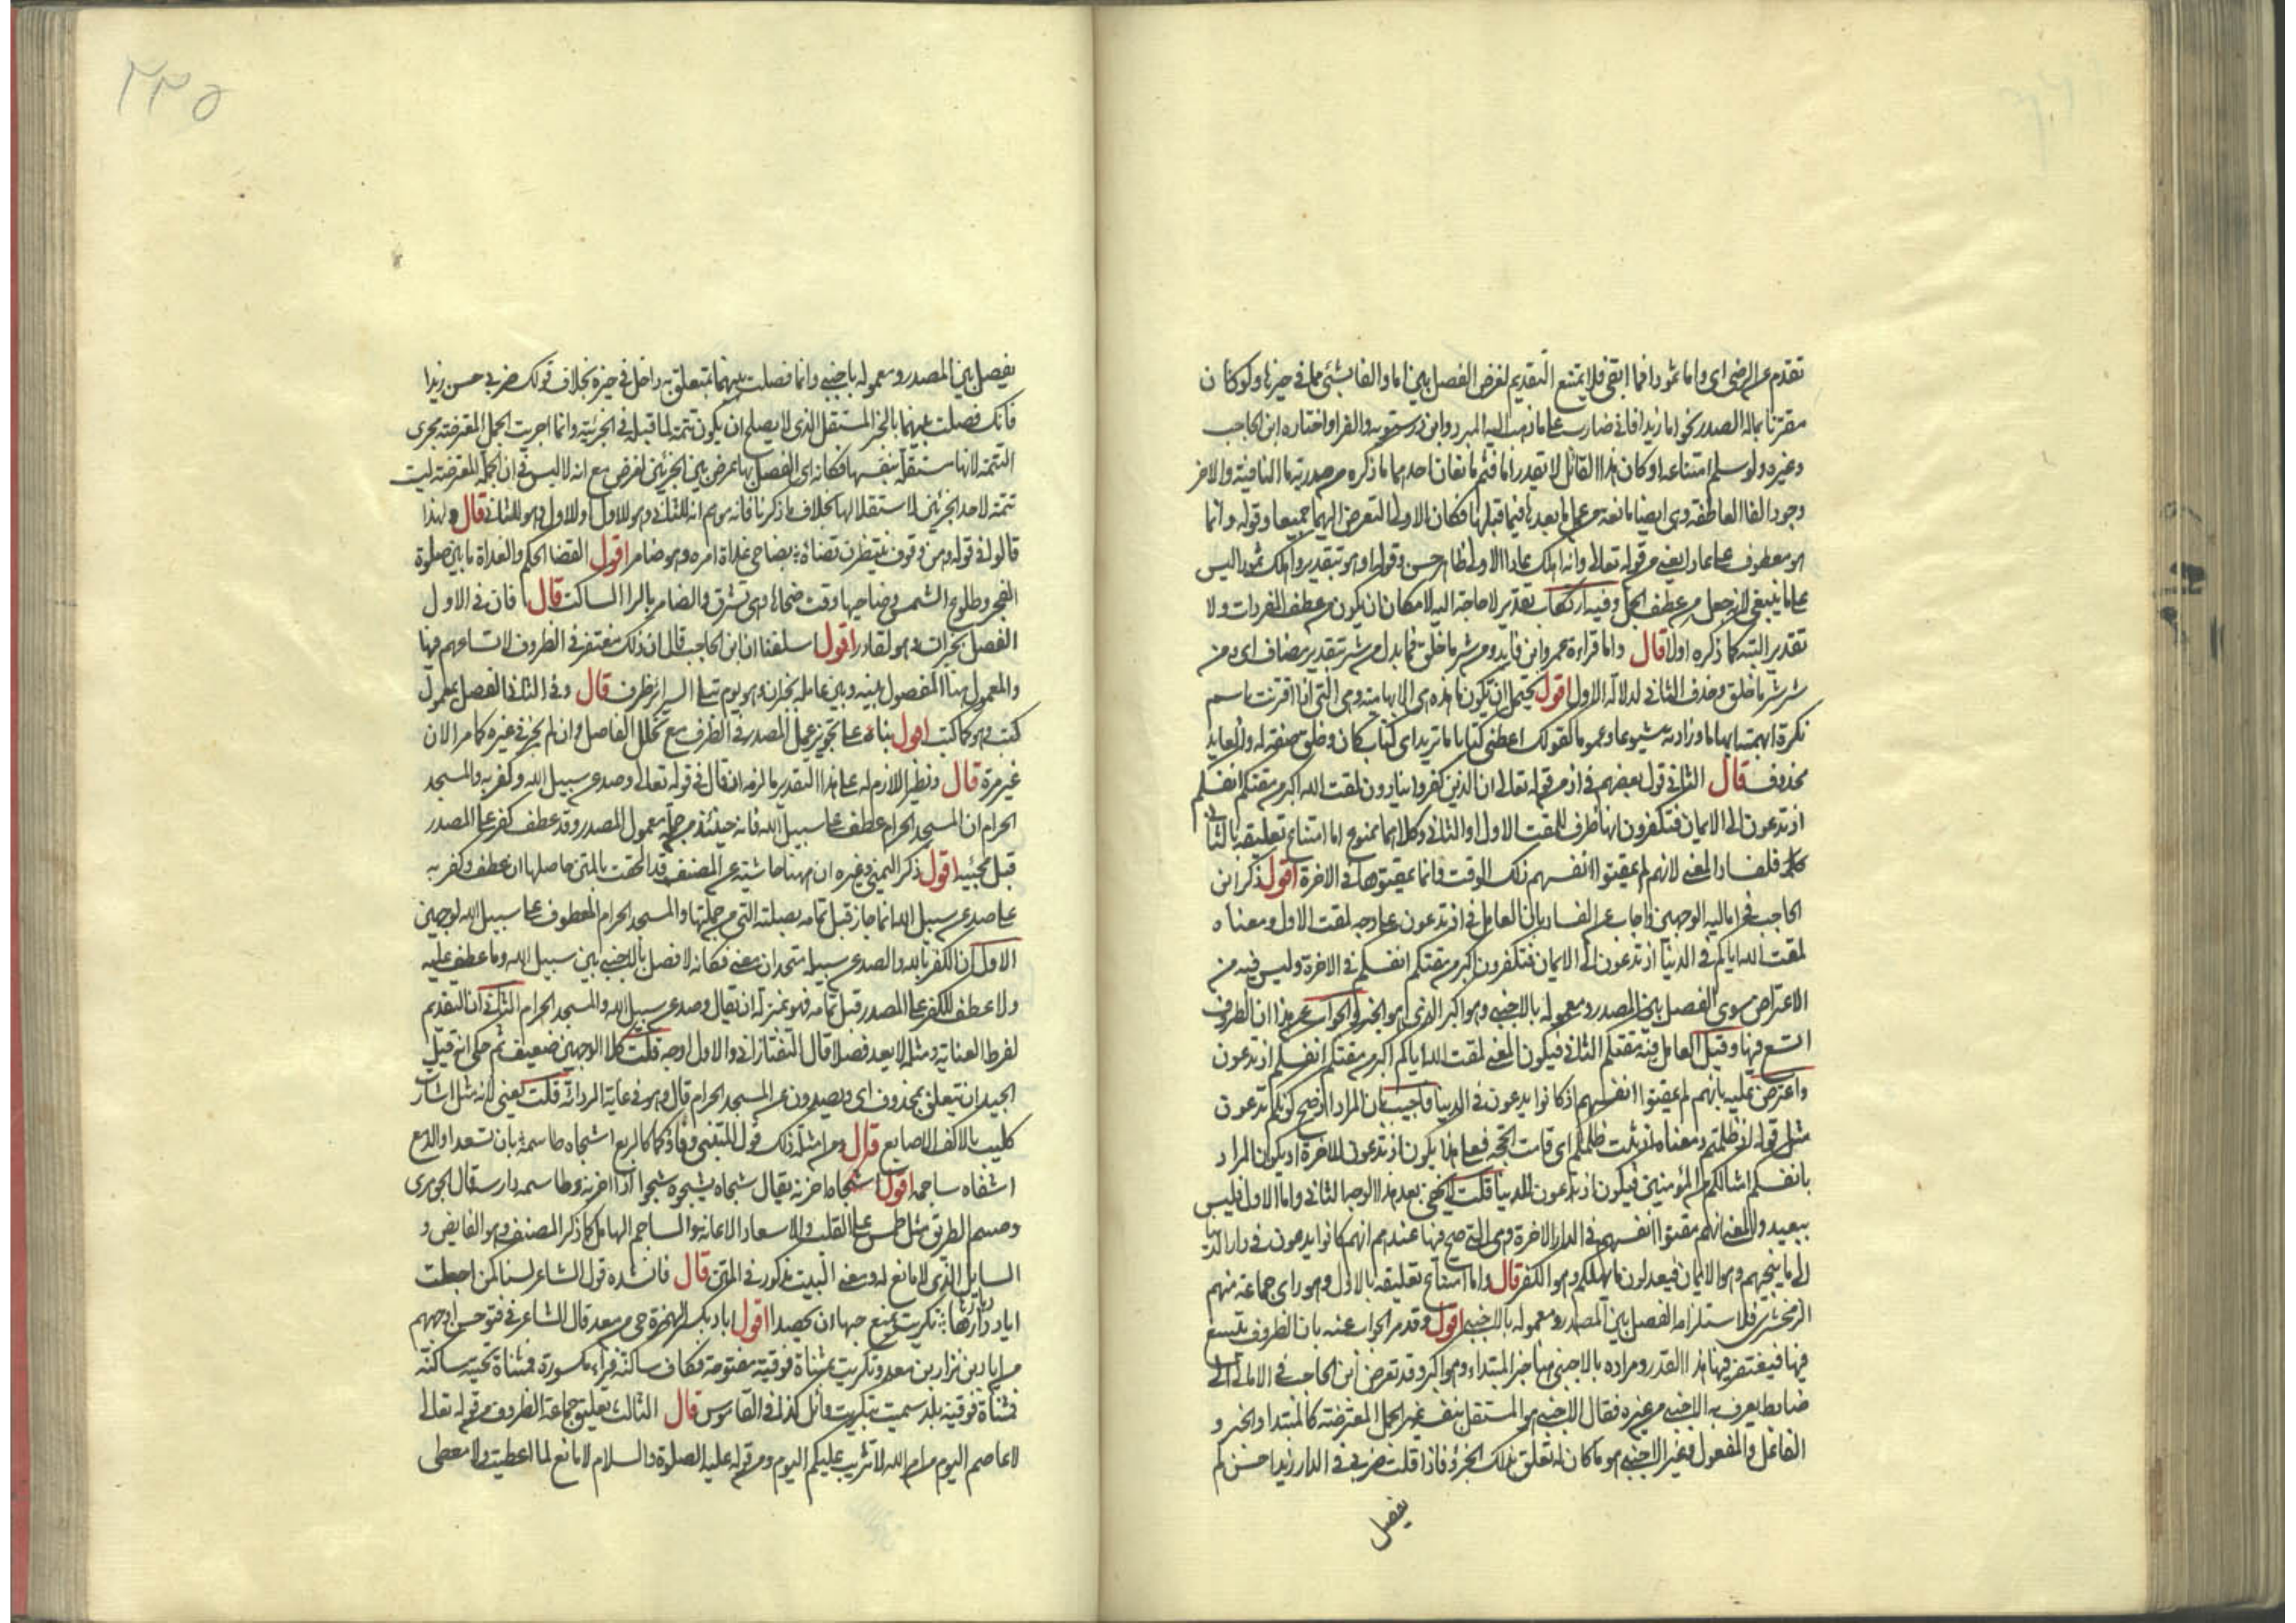 تقدم عن الرضى اى واما ثمود فما ابقى فلا يمتنع التقديم لغرض الفصل بين اما والفا بشئ مما فى حيزها ولو كان
مقترنا بماله الصدر نحو اما زيدا فانى ضارب على ما ذهب اليه المبرد وابن درستويه والفرا واختاره ابن الحاجب
وغيره ولو سلم امتناعه او كان هذا القائل لا يقدر اما فثم مانعان احدهما ما ذكره من صدرية ما النافية والاخر
وجود الفا العاطفة وهى ايضا مانعة من عمل ما بعدها فيما قبلها فكان الاولى التعرض اليهما جميعا وقوله وانما
هو معطوف على عادا يعنى من قوله تعالى وانه اهلك عادا الاولى ظاهر حسن وقوله او هو بتقدير واهلك ثمود ليس
على ما ينبغى لانه جعله من عطف الجمل وفيه ارتكاب تقدير لا حاجة اليه لامكان ان يكون من عطف المفردات ولا
تقدير البتة كما ذكره اولا قال واما قراءة عمرو ابن فايد من شر ما خلق فما بدل من شر بتقدير مضاف اى من
شر شر ما خلق وحذف الثانى لدلالة الاول اقول يحتمل ان تكون ما هذه هى الابهامية وهى التى اذا اقترنت باسم
نكرة ابهمته ابهاما وزادته شيوعا وعموما كقولك اعطنى كتابا ما تريد اى كتاب كان وخلق صفة له والعايد
محذوف قال الثانى قول بعضهم فى اذ من قوله تعالى ان الذين كفروا ينادون لمقت الله اكبر من مقتكم انفسكم
اذ تدعون الى الايمان فتكفرون انها ظرف للمقت الاول او الثانى وكلاهما ممنوع اما امتناع تعليقه بالثانى
فلفساد المعنى لانهم لم يمقتوا انفسهم ذلك الوقت وانما يمقتونها فى الاخرة اقول ذكر ابن
الحاجب فى اماليه الوجهين واجاب عن الفساد بان العامل فى اذ تدعون على وجه لمقت الاول ومعناه
لمقت الله اياكم فى الدنيا اذ تدعون الى الايمان فتكفرون اكبر من مقتكم انفسكم فى الاخرة وليس فيه من
الاعتراض سوى الفصل بين المصدر ومعموله بالاجنبى وهو اكبر الذى هو الخبر والجواب عن هذا ان الظروف
اتسع فيها وقيل العامل فيه مقتكم الثانى فيكون المعنى لمقت الله اياكم اكبر من مقتكم انفسكم اذ تدعون
واعترض عليه بانهم لم يمقتوا انفسهم اذ كانوا يدعون فى الدنيا فاجيب بان المراد اذ صح كونكم تدعون
مثل قوله اذ ظلمتم ومعناه اذ ثبت ظلمكم اى قامت الحجة فعلى هذا يكون اذ تدعون للاخرة او يكون المراد
بانفسكم امثالكم من المؤمنين فيكون اذ تدعون للدنيا قلت لا يخفى بعد هذا الوجه الثانى واما الاول فليس
ببعيد ولا المعنى انهم مقتوا انفسهم فى الدار الاخرة وهى التى صح فيها عندهم انهم كانوا يدعون فى دار الدنيا
الى ما ينجيهم وهو الايمان فيعدلون لما يهلكهم وهو الكفر قال واما امتناع تعليقه بالاول وهو راى جماعة منهم
الزمخشرى فلاستلزامه الفصل بين المصدر ومعموله بالاجنبى اقول وقد مر الجواب عنه بان الظروف يتسع
فيها فيغتفر فيها هذا القدر ومراده بالاجنبى هنا خبر المبتداء وهو اكبر وقد تعرض ابن الحاجب فى الامالى الى
ضابط يعرف به الاجنبى من غيره فقال الاجنبى هو المستقل بنفسه غير الجمل المعترضة كالمبتدا والخبر و
الفاعل والمفعول وغير الاجنبى هو ما كان له تعلق بذلك الجزء فاذا قلت ضربى فى الدار زيدا حسن لم
يفصل
٢٣٥
يفصل بين المصدر ومعموله باجنبى وانما فصلت بينهما بمتعلق به داخل فى حيزه بخلاف قولك ضربى حسن زيدا
فانك فصلت بينهما بالخبر المستقل الذى لا يصلح ان يكون تتمة لما قبله فى الجزئية وانما اجريت الجمل المعترضة مجرى
التتمة لانها مستقلة بنفسها فكانه اى الفصل بها عرض بين الجزئين لغرض مع انه لا لبس فى ان الجملة المعترضة ليست
تتمة لاحد الجزئين لاستقلالها بخلاف ما ذكرنا فانه يوهم انه للثانى وهو للاول او للاول وهو للثانى قال ولهذا
قالوا فى قوله وهن وقوف ينتظرن قضاة بضاحى غداة امره وهو ضامر اقول القضا الحكم والغداة ما بين صلوة
الفجر وطلوع الشمس وضاحيها وقت ضحائها وهى تشرق والضامر بالرا الساكت قال فان فى الاول
الفصل بخبر ان وهو لقادر اقول اسلفنا ان ابن الحاجب قال ان ذلك مغتفر فى الظروف لاتساعهم فيها
والمعمول هنا المفصول بينه وبين عامله بخبر ان وهو يوم تبلى السرائر ظرف قال وفى الثانى الفصل بمعمول
كتب وهو كما كتب اقول بناء على تجويز عمل المصدر فى الظرف مع تخلل الفاصل وان لم يجز فى غيره كما مر الان
غير مرة قال ونظير اللازم له على هذا التقدير ما لزمه ان قال فى قوله تعالى وصد عن سبيل الله وكفر به والمسجد
الحرام ان المسجد الحرام عطف على سبيل الله فانه حينئذ من جملة معمول المصدر وقد عطف كفر على المصدر
قبل مجيئه اقول ذكر اليمنى وغيره ان ههنا حاشية عن المصنف قد الحقت بالمتن حاصلها ان عطف وكفر به
على صد عن سبيل الله انما جاز قبل تمامه بصلته التى من جملتها والمسجد الحرام المعطوف على سبيل الله لوجهين
الاول ان الكفر بالله والصد عن سبيله متحدان معنى فكانه لا فصل بالاجنبى بين سبيل الله وما عطف عليه
ولا عطف للكفر على المصدر قبل تمامه فهو بمنزلة ان يقال وصد عن سبيل الله والمسجد الحرام الثانى ان التقديم
لفرط العناية ومثله لا يعد فصلا قال التفتازانى والاول اوجه قلت كلا الوجهين ضعيف ثم حكى انه قيل
الجيد ان يتعلق بمحذوف اى ويصدون عن المسجد الحرام قال وهو فى غاية الرداءة قلت يعنى لانه مثل اشارت
كليب بالاكف الاصابع قال ومن امثلة ذلك قول المتنبى وفاؤكما كالربع اشجاه طاسمه بان تسعدا والدمع
اشفاه ساجمه اقول اشجاه احزنه يقال شجاه يشجوه شجوا اذا احزنه وطاسمه دارسه قال الجوهرى
وطسم الطريق مثل طمس على القلب والاسعاد الاعانة والساجم الهامل كما ذكر المصنف وهو الفايض و
السايل الذى لا مانع له ومعنى البيت مذكور فى المتن قال فانشده قول الشاعر لسنا كمن جعلت
اياد دارها تكريت تمنع حبها ان يحصدا اقول اياد بكسر الهمزة حى من معد قال الشاعر فى فتو حسن اوجههم
من اياد بن نزار بن معد وتكريت بمثناة فوقية مفتوحة فكاف ساكنة فراء مكسورة فمثناة تحتية ساكنة
فمثناة فوقية بلد سميت بتكريت وائل كذا فى القاموس قال الثالث تعليق جماعة الظروف من قوله تعالى
لا عاصم اليوم من امر الله لا تثريب عليكم اليوم ومن قوله عليه الصلوة والسلام لا مانع لما اعطيت ولا معطى